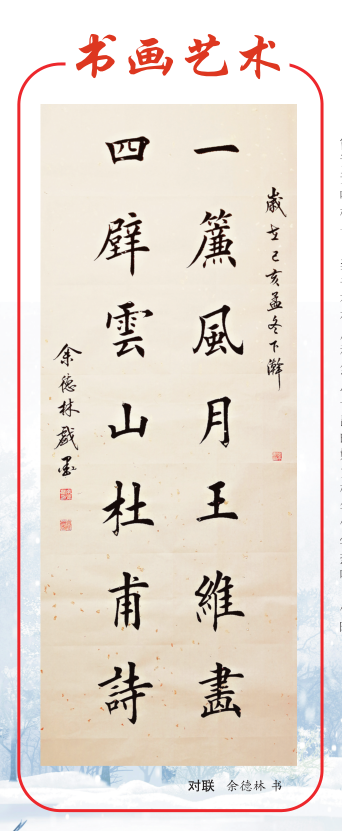 书画艺术
歲在己亥孟冬下澣
一簾風月王維畫
四壁雲山杜甫詩
余德林戲墨
对联 余德林 书